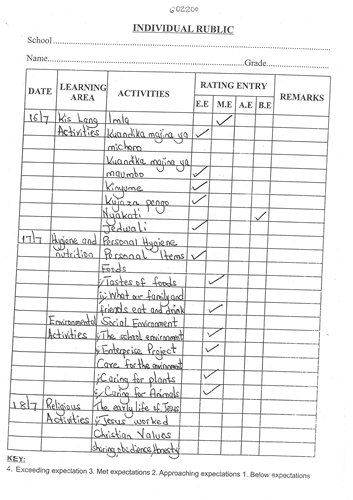 602200
INDIVIDUAL RUBLIC
School
Name Grade
DATE LEARNING AREA ACTIVITIES RATING ENTRY REMARKS
E.E M.E A.E B.E
16/7 Kis Lang Imla
Activities Kuandika majina ya
michoro
Kuandika majina ya
maumbo
Kinyume
Kujaza pengo
Nyakati
Jedwali
17/7 Hygiene and Personal Hygiene
nutrition Personal Items
Foods
i) Tastes of foods
ii) What our family and
friends eat and drink
Environmental Social Environment
Activities i) The school environment
ii) Enterprise Project
Care for the environment
i) Caring for plants
ii) Caring for Animals
18/7 Religious The early life of Jesus
Activities i) Jesus worked
Christian Values
sharing, obedience, honesty
KEY:
4. Exceeding expectation 3. Met expectations 2. Approaching expectations 1. Below expectations